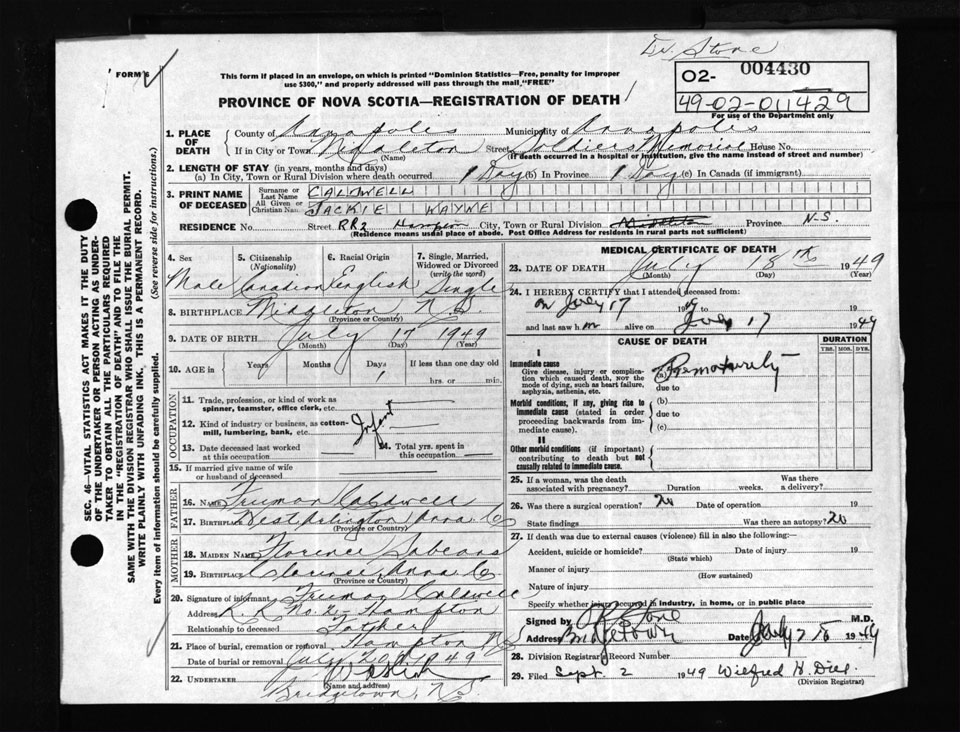 Dr. Stone
FORM 6
This form if placed in an envelope, on which is printed "Dominion Statistics—Free, penalty for improper
use $300," and properly addressed will pass through the mail "FREE"
O2- 004430
49-02-011429
For use of the Department only
PROVINCE OF NOVA SCOTIA—REGISTRATION OF DEATH
1. PLACE OF DEATH County of Annapoles Municipality of Annapoles
If in City or Town Middleton Street Soldiers Memorial House No.
(Name) (If death occurred in a hospital or institution, give the name instead of street and number)
2. LENGTH OF STAY (in years, months and days)
(a) In City, Town or Rural Division where death occurred 1 Day (b) In Province 1 Day (c) In Canada (if immigrant)
3. PRINT NAME OF DECEASED Surname or Last Name CALDWELL
All Given or Christian Names JACKIE WAYNE
RESIDENCE No. Street RR2 Hampton City, Town or Rural Division Province N.S.
(Residence means usual place of abode. Post Office Address for residents in rural parts not sufficient)
4. Sex 5. Citizenship (Nationality) 6. Racial Origin 7. Single, Married, Widowed or Divorced (write the word)
Male Canadian English Single
8. BIRTHPLACE Middleton N.S.
(Province or Country)
9. DATE OF BIRTH July 17 1949
(Month) (Day) (Year)
10. AGE in Years Months Days If less than one day old
1 hrs. or min.
OCCUPATION
11. Trade, profession, or kind of work as spinner, teamster, office clerk, etc.
12. Kind of industry or business, as cotton-mill, lumbering, bank, etc. Infant
13. Date deceased last worked at this occupation 14. Total yrs. spent in this occupation
15. If married give name of wife or husband of deceased
FATHER
16. Name Truman Caldwell
17. Birthplace West Arlington Anna Co
(Province or Country)
MOTHER
18. MAIDEN NAME Florence Sabeans
19. BIRTHPLACE Clarence Anna Co
(Province or Country)
20. Signature of informant Truman Caldwell
Address R.R. No. 2 Hampton
Relationship to deceased Father
21. Place of burial, cremation or removal Hampton N.S.
Date of burial or removal July 1949
22. UNDERTAKER
(Name and address)
Bridgetown, N.S.
MEDICAL CERTIFICATE OF DEATH
23. DATE OF DEATH July 18th 1949
(Month) (Day) (Year)
24. I HEREBY CERTIFY that I attended deceased from:
on July 17 1949 to
and last saw h m alive on July 17 1949
CAUSE OF DEATH DURATION
YRS. MOS. DYS.
I
Immediate cause (a) Prematurity
Give disease, injury or complication which caused death, NOT the mode of dying, such as heart failure, asphyxia, asthenia, etc. due to
Morbid conditions, if any, giving rise to immediate cause (stated in order proceeding backwards from immediate cause). (b)
due to
(c)
II
Other morbid conditions (if important) contributing to death but not causally related to immediate cause.
25. If a woman, was the death associated with pregnancy? Duration weeks. Was there a delivery?
26. Was there a surgical operation? No Date of operation 19
State findings Was there an autopsy? No
27. If death was due to external causes (violence) fill in also the following:
Accident, suicide or homicide? Date of injury 19
(State which)
Manner of injury
(How sustained)
Nature of injury
Specify whether injury occurred in industry, in home, or in public place
Signed by Stone M.D.
Address Bridgetown Date July 1949
28. Division Registrar's Record Number
29. Filed Sept. 2 1949 Wilfred H. Diel
(Division Registrar)
SEC. 46—VITAL STATISTICS ACT MAKES IT THE DUTY
OF THE UNDERTAKER OR PERSON ACTING AS UNDER-
TAKER TO OBTAIN ALL THE PARTICULARS REQUIRED
IN THE "REGISTRATION OF DEATH" AND TO FILE THE
SAME WITH THE DIVISION REGISTRAR WHO SHALL ISSUE THE BURIAL PERMIT.
WRITE PLAINLY WITH UNFADING INK. THIS IS A PERMANENT RECORD.
Every item of information should be carefully supplied. (See reverse side for instructions.)